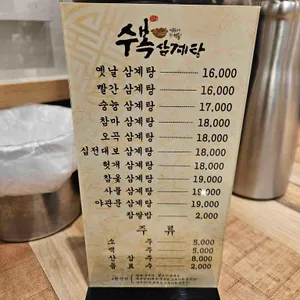 수복 삼계탕
옛날 삼계탕 16,000
빨간 삼계탕 16,000
숭늉 삼계탕 17,000
참마 삼계탕 18,000
오곡 삼계탕 18,000
십전대보 삼계탕 18,000
헛개 삼계탕 18,000
참옻 삼계탕 19,000
사물 삼계탕 19,000
야관문 삼계탕 19,000
찹쌀밥 2,000
주 류
소 주 5,000
맥 주 5,000
산 삼 주 8,000
음 료 수 2,000